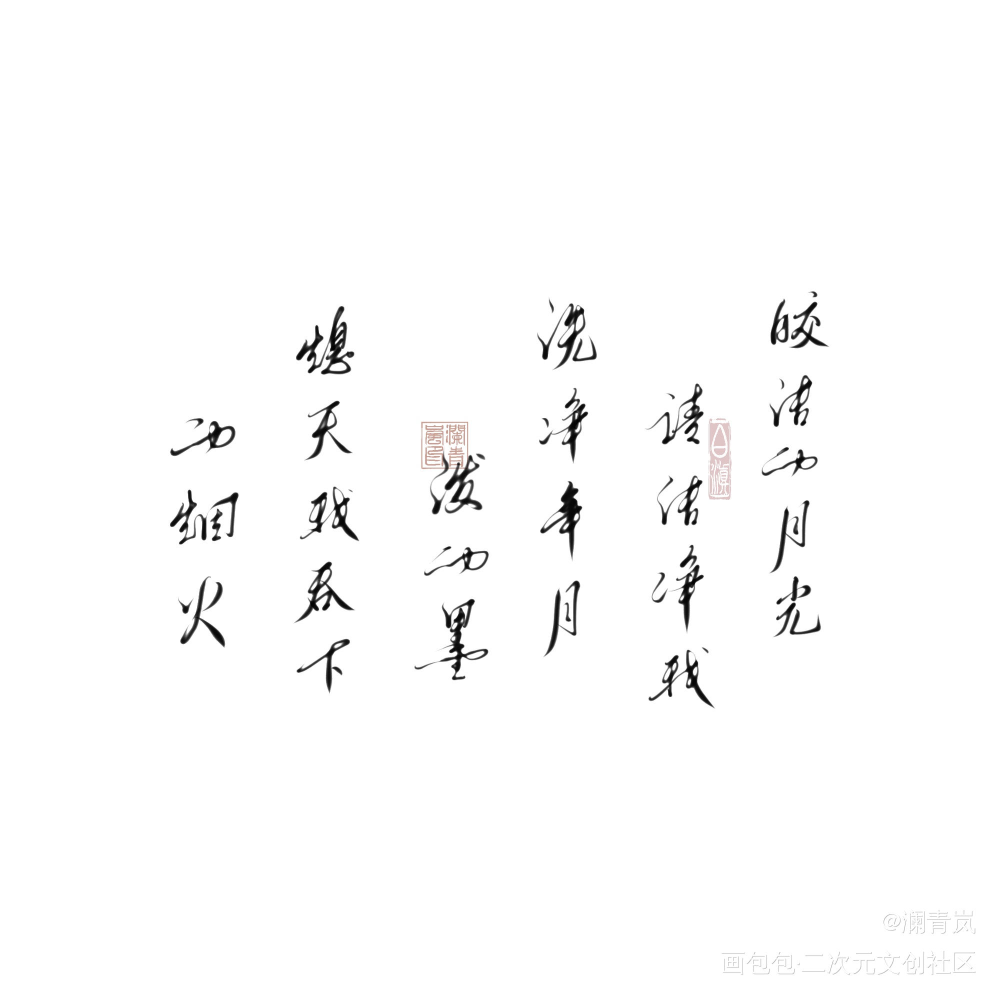 皎洁的月光
请洁净我
洗净年月
泼的墨
熄天我吞下
的烟火
@澜青岚
画包包·二次元文创社区